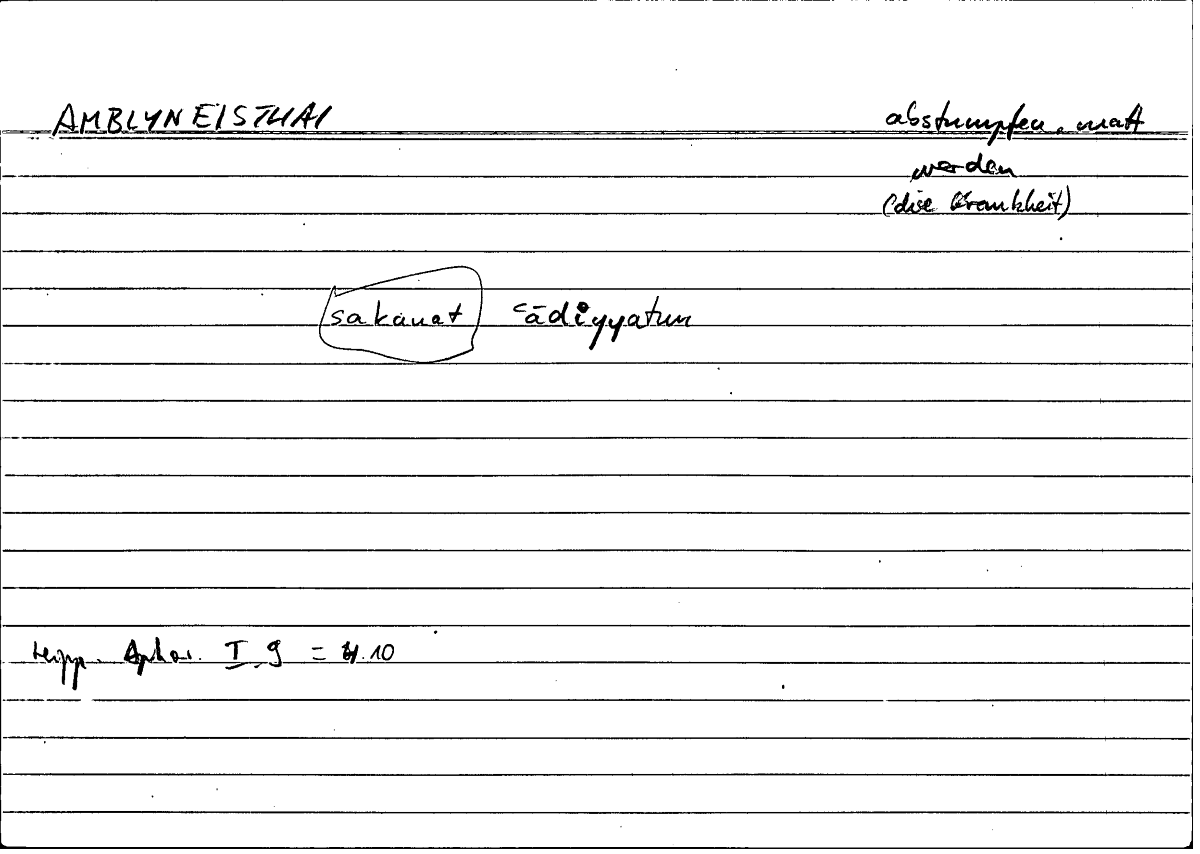 AMBLYNEISTHAI
abstumpfen, matt
werden
(die Krankheit)
sakanat ʿādiyyatun
Hipp. Aphor. I 9 = 4.10